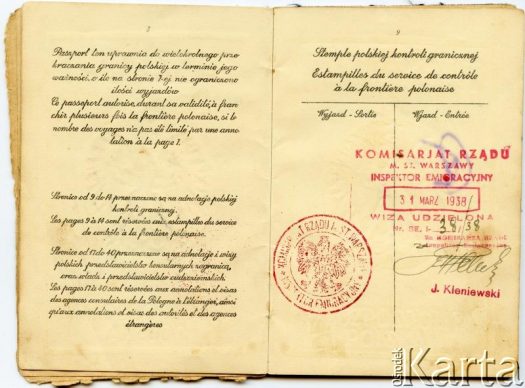 8
Paszport ten uprawnia do wielokrotnego prze-
kraczania granicy polskiej w terminie jego
ważności, o ile na stronie 7-ej nie ograniczono
ilości wyjazdów
Ce passeport autorise, durant sa validité, à fran-
chir plusieurs fois la frontière polonaise, si le
nombre des voyages n'a pas été limité par une anno-
tation à la page 7.
Stronice od 9 do 14 przeznaczone są na adnotacje polskiej
kontroli granicznej.
Les pages 9 à 14 sont réservées aux estampilles du service
de contrôle à la frontière polonaise.
Stronice od 17 do 40 przeznaczone są na adnotacje i wizy
polskich przedstawicielstw konsularnych zagranicą,
oraz władz i przedstawicielstw cudzoziemskich.
Les pages 17 à 40 sont réservées aux annotations et visas
des agences consulaires de la Pologne à l'étranger, ainsi
qu'aux annotations et visas des autorités et des agences
étrangères
9
Stemple polskiej kontroli granicznej
Estampilles du service de contrôle
à la frontière polonaise
Wyjazd - Sortie
Wjazd - Entrée
KOMISARJAT RZĄDU
M. ST. WARSZAWY
INSPEKTOR EMIGRACYJNY
31 MARZ 1938
WIZA UDZIELONA
38/38
J. Kleniewski
ośrodek
Karta